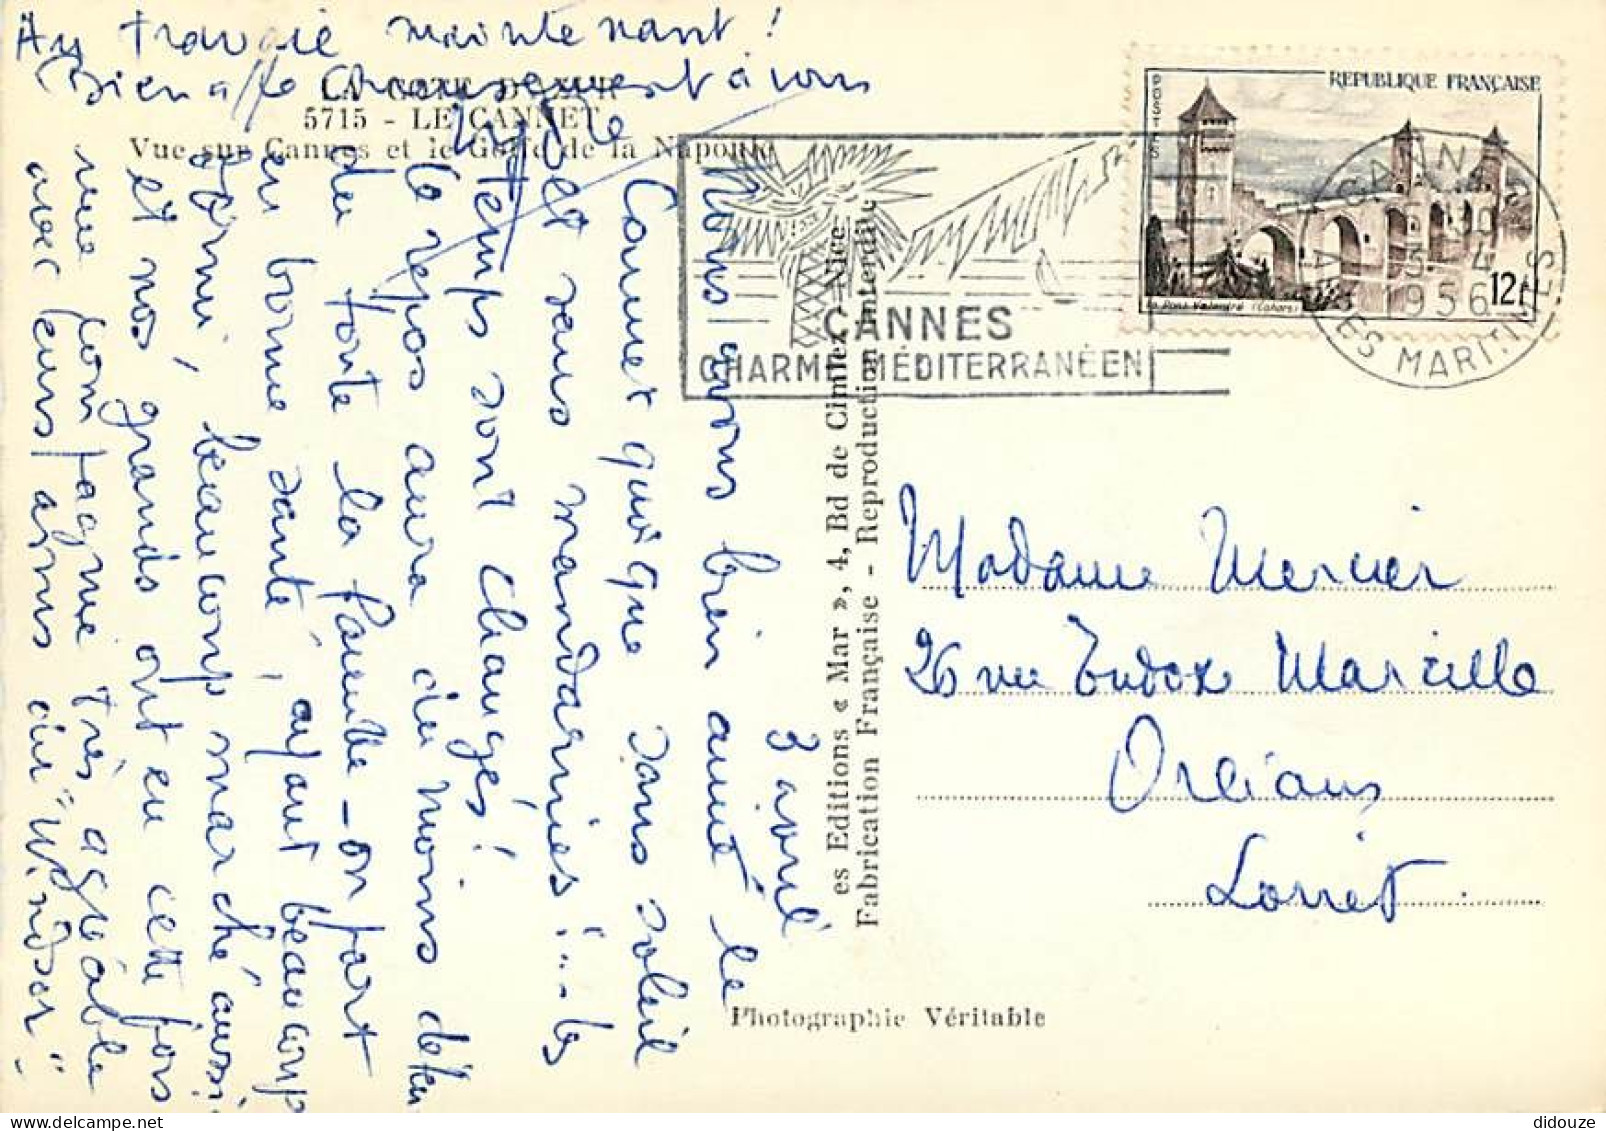 LA COTE D'AZUR
5715 - LE CANNET
Vue sur Cannes et le Golfe de la Napoule
3 avril
Nous avons bien aimé le
Cannet quoique sans soleil
et sans mandarines!... les
temps sont changés!
Le repos aura du moins détendu
toute la famille - on part
en bonne santé, ayant beaucoup
dormi, beaucoup marché aussi
et nos grands ont eu cette fois
une compagnie très agréable
avec leurs amis du "Windsor".
Au travail maintenant!
Bien affectueusement à vous
REPUBLIQUE FRANÇAISE
POSTES
12F
Le Pont Valentré (Cahors)
CANNES
CHARME MÉDITERRANÉEN
CANNES
3-4
1956
ALPES MARITIMES
es Editions « Mar », 4, Bd de Cimiez - Nice
Fabrication Française - Reproduction interdite
Madame Mercier
26 rue Eudoxe Marcille
Orléans
Loiret
Photographie Véritable
didouze